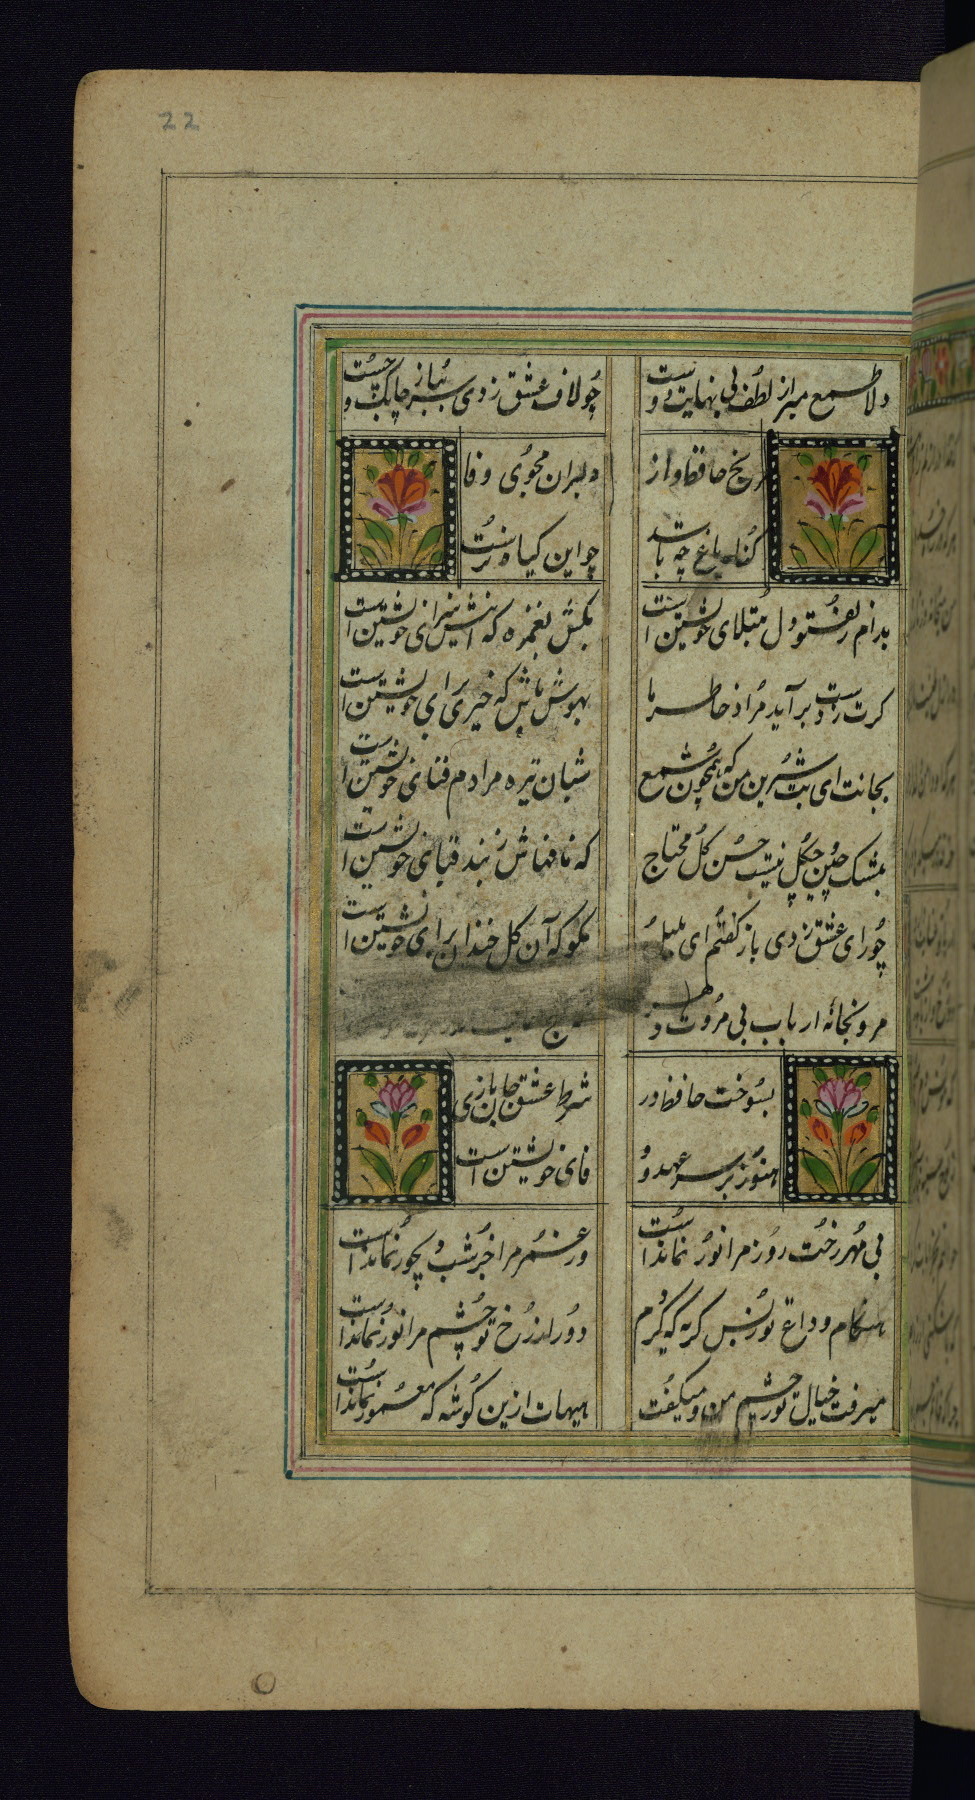 22
دلا طمع مبر از لطف بی نهایت دوست چو لاف عشق زدی سر بباز چابک و چست
مرنج حافظ و از دلبران مجوی وفا
گناه باغ چه باشد چو این گیاه نرست
بدام زلف تو دل مبتلای خویشتن است بکش بغمزه که اینش سزای خویشتن است
گرت ز دست برآید مراد خاطر ما بهوش باش که خیری برای خویشتن است
بجانت ای بت شیرین من که همچون شمع شبان تیره مرادم فنای خویشتن است
بمشک چین و چگل نیست حسن گل محتاج که نافهاش ز بند قبای خویشتن است
چو رای عشق زدی باز گفتم ای بلبل مکن که آن گل خندان برای خویشتن است
مرو بخانه ارباب بی مروت دهر که گنج عافیت
بسوخت حافظ و در شرط عشق جانبازی
هنوز بر سر عهد و وفای خویشتن است
بی مهر رخت روز مرا نور نماندست وز عمر مرا جز شب دیجور نماندست
هنگام وداع تو ز بس گریه که کردم دور از رخ تو چشم مرا نور نماندست
میرفت خیال تو ز چشم من و میگفت هیهات ازین گوشه که معمور نماندست